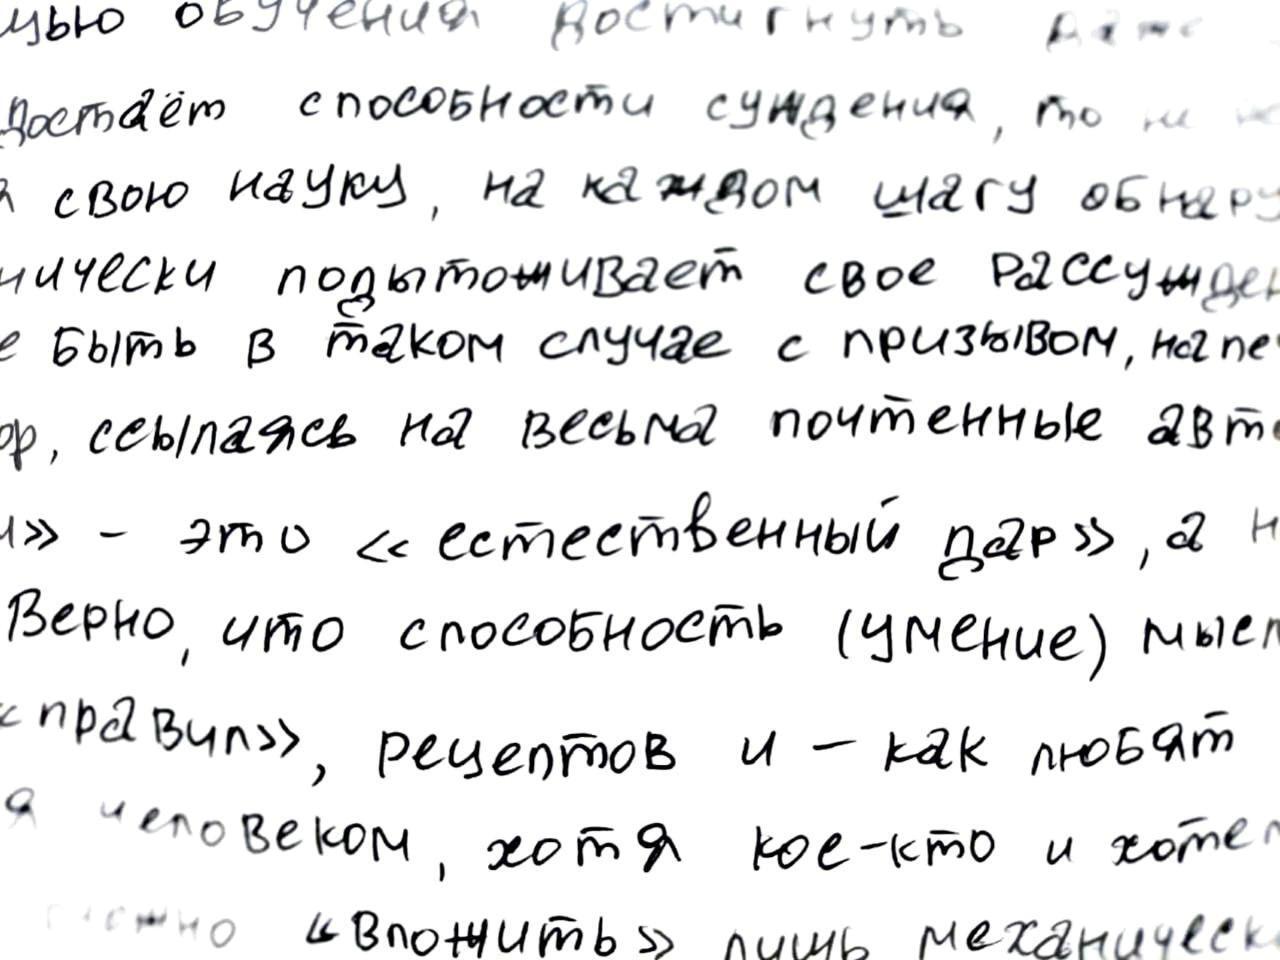 обучения достигнуть даже
достаёт способности суждения, то ни
свою науку, на каждом шагу обнару
ически подытоживает свое рассужден
быть в таком случае с призывом, напе
ор, ссылаясь на весьма почтенные авто
и» - это «естественный дар», а н
Верно, что способность (умение) мысл
«правил», рецептов и - как любят
я человеком, хотя кое-кто и хотел
можно «вложить» лишь механическ